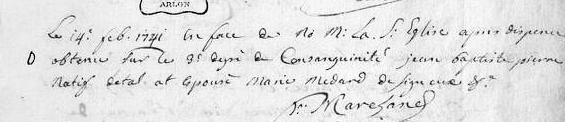 ARLON
Le 14. feb. 1741 en face de No M. La Ste Eglise apris dispence
D obtenu sur le 3e degré de Consanguinité jean baptiste pierre
Natif detal at Epousé Marie Medard de signeux &c
Marchand